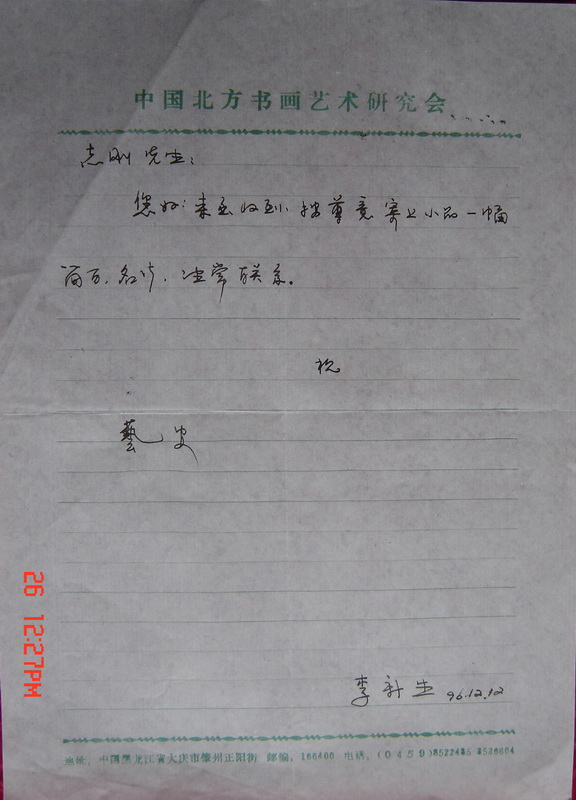 中国北方书画艺术研究会
志刚先生：
您好：来函收到，按尊意寄上小品一幅
常联系。
祝
藝安
李 生 96.12.12
地址：中国黑龙江省大庆市肇州正阳街 邮编：166400 电话：(0459)8522485 8526604
26 12:27PM